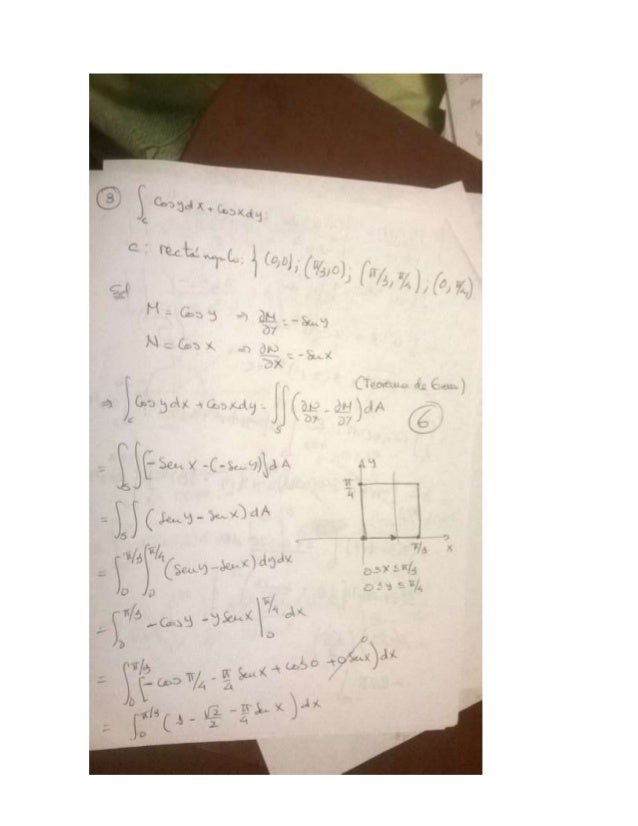 ③ ∫_c Cosydx + Cosxdy.
c: rectángulo: {(0,0); (π/3,0); (π/3, π/4); (0, π/4)
Sol
M = Cos y ⇒ ∂M/∂y = -Sen y
N = Cos x ⇒ ∂N/∂x = -Sen x
(Teorema de Green)
⇒ ∫_c Cos y dx + Cosxdy = ∬_S (∂N/∂x - ∂M/∂y) dA
⑥
= ∬_S [-Sen x - (-Sen y)] dA
= ∬_S (Sen y - Sen x) dA
= ∫_0^{π/3} ∫_0^{π/4} (Sen y - Sen x) dy dx
= ∫_0^{π/3} -Cos y - y Sen x |_0^{π/4} dx
= ∫_0^{π/3} [-Cos π/4 - π/4 Sen x + Cos 0 + 0 Sen x) dx
0
= ∫_0^{π/3} (1 - √2/2 - π/4 Sen x) dx
y
π/4
π/3
x
0 ≤ x ≤ π/3
0 ≤ y ≤ π/4